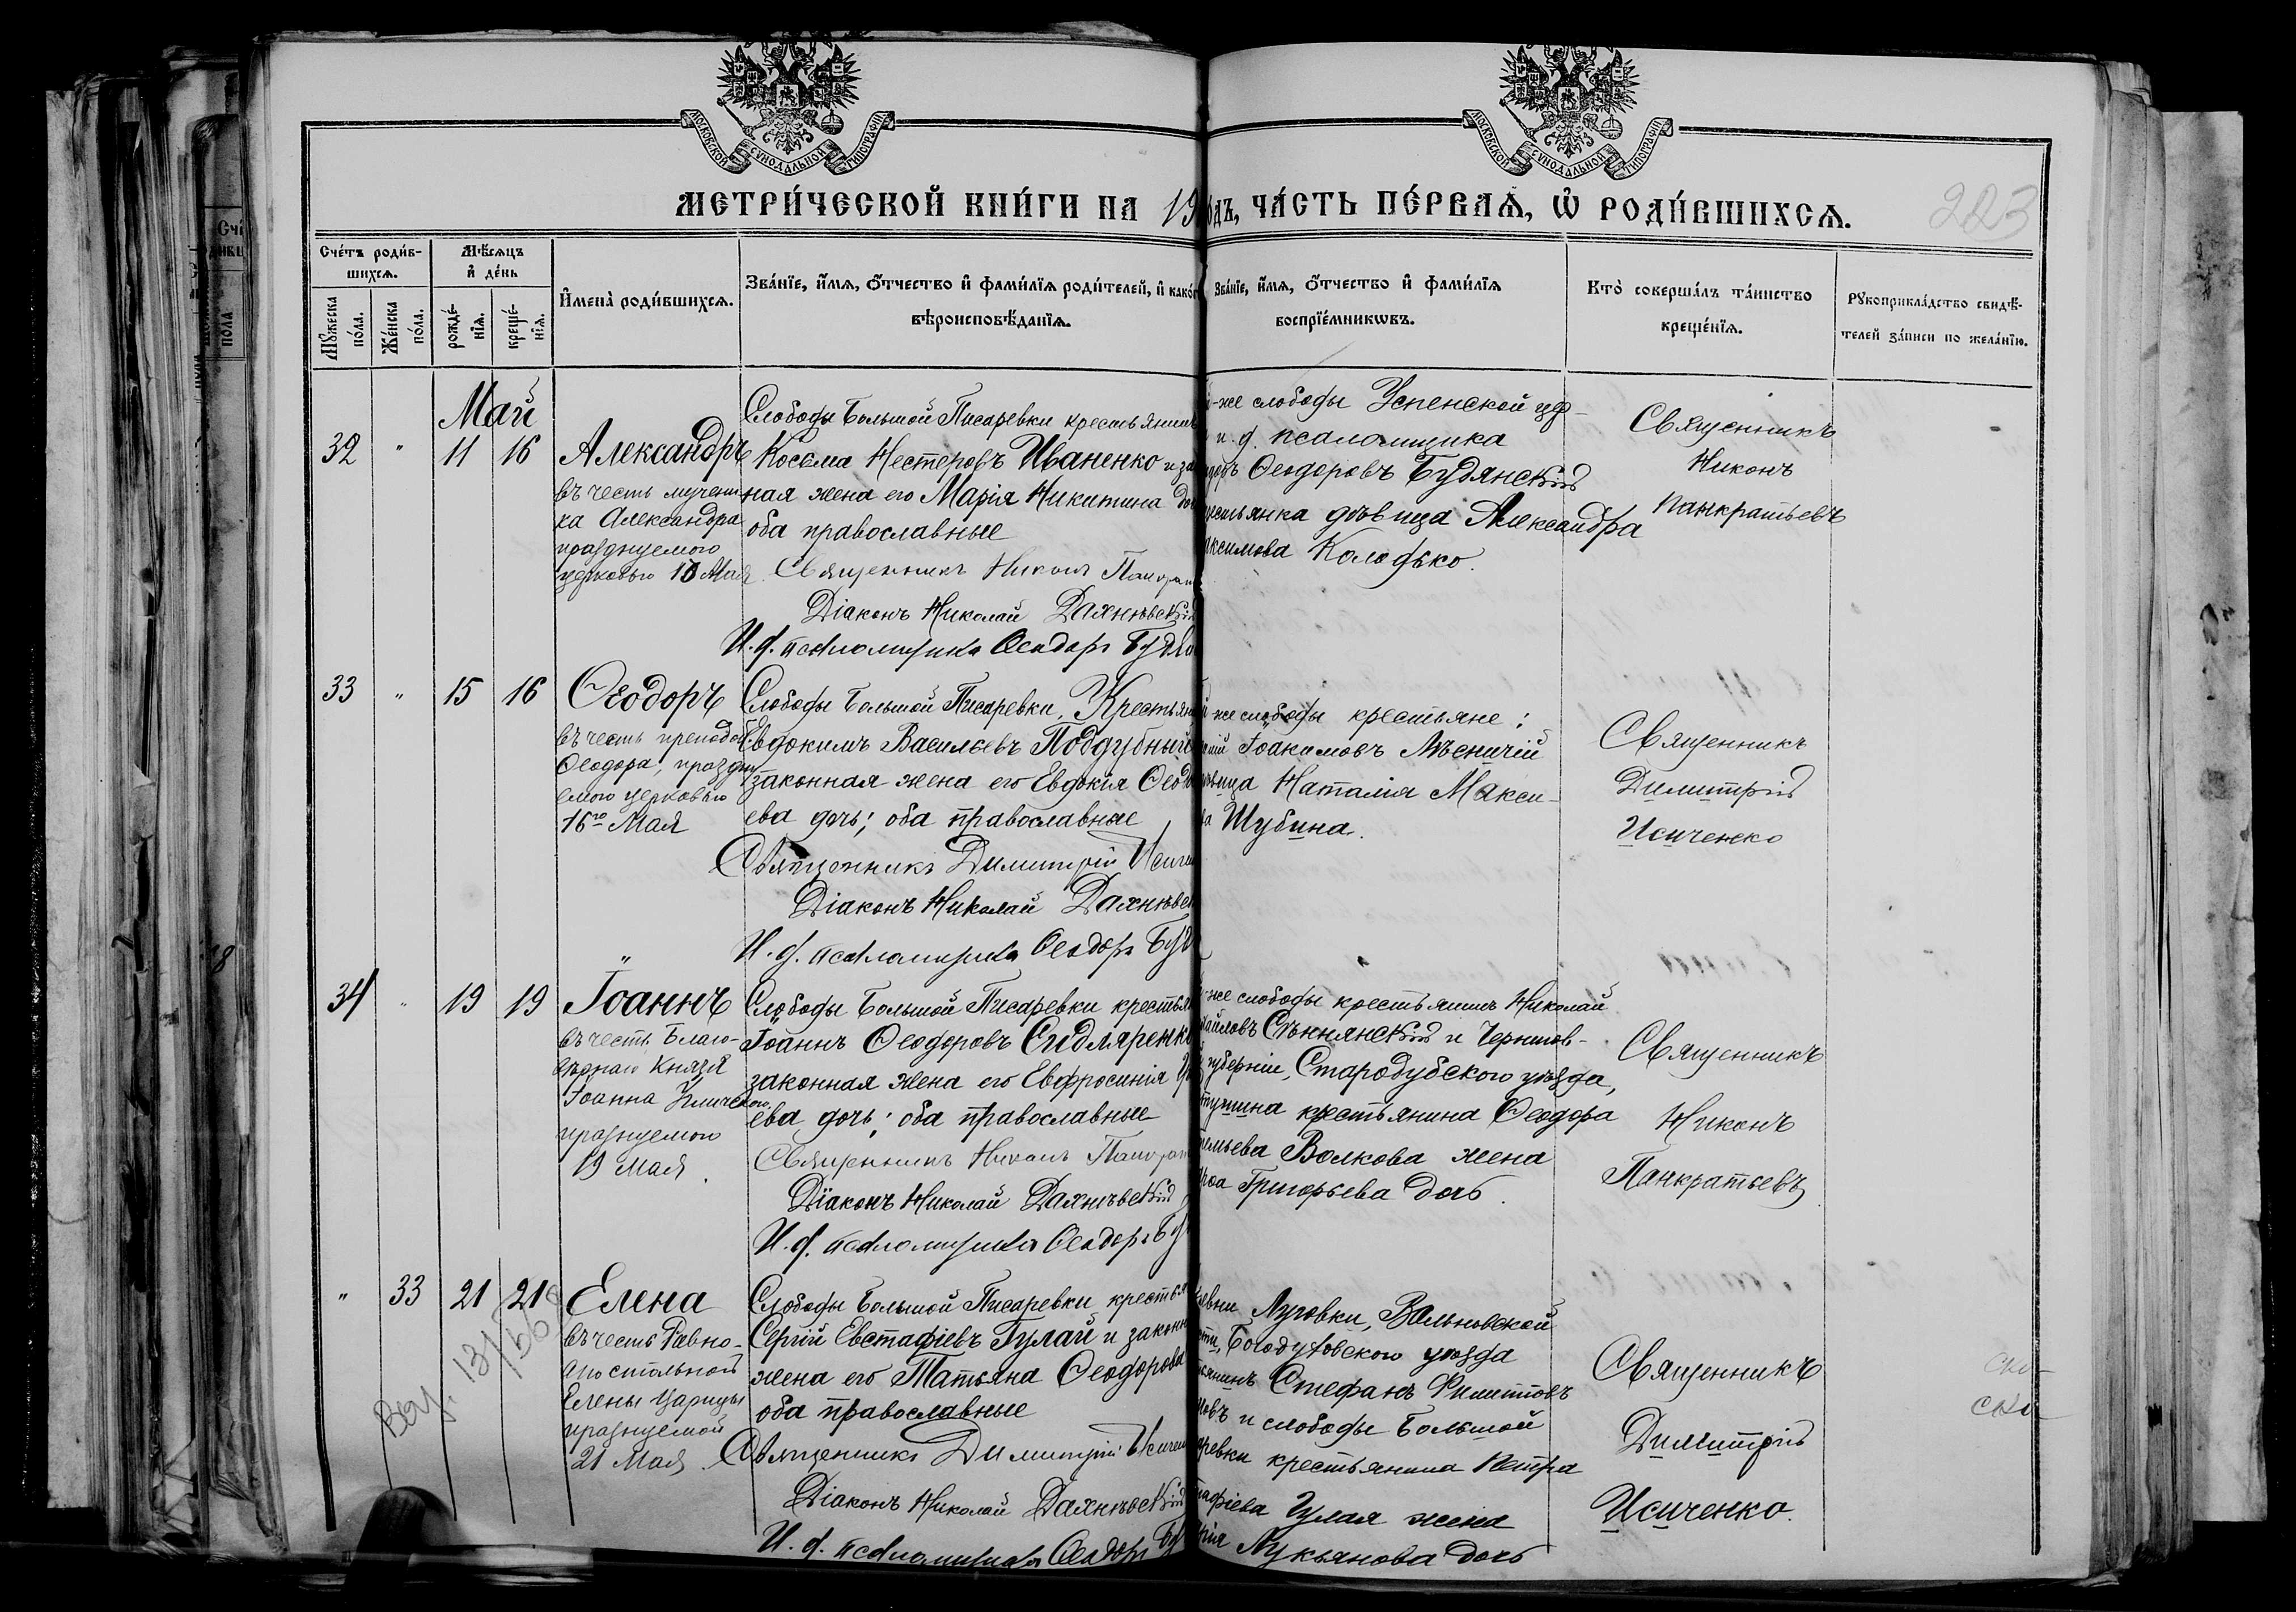 МОСКОВСКОЙ СѴНОДАЛЬНОЙ ТИПОГРАФІИ
МОСКОВСКОЙ СѴНОДАЛЬНОЙ ТИПОГРАФІИ
МЕТРИ́ЧЕСКОЙ КНИ́ГИ НА 19
ДЪ, ЧА́СТЬ ПЕ́РВАѦ, Ѡ҆ РОДИ́ВШИХСѦ.
223
Сче́тъ роди́в-
шихсѧ.
Мѣ́сѧцъ
и҆ де́нь
Мꙋ́жеска по́ла.
Же́нска по́ла.
рожде́-нїѧ.
креще́-нїѧ.
И҆мена̀ роди́вшихсѧ.
Зва́нїе, и҆́мѧ, ѻ҆́тчество и҆ фами́лїѧ роди́телей, и҆ како́г
вѣроисповѣ́данїѧ.
Зва́нїе, и҆́мѧ, ѻ҆́тчество и҆ фами́лїѧ
воспрїе́мникѡвъ.
Кто̀ соверша́лъ та́инство
креще́нїѧ.
Рꙋкоприкла́дство свидѣ́-
телей за́писи по жела́нїю.
Май
32 " 11 16
Александръ
въ честь мучени
ка Александра
празднуемого
церковью 10 Мая
Слободы Большой Писаревки крестьянинъ
Косьма Нестеровъ Иваненко и за
ная жена его Марія Никитина доч
оба православные
Священникъ Никонъ Панкрат
Діаконъ Николай Дахнѣвскій
И. д. псаломщика Ѳеодоръ Будян
же слободы Успенской цер-
и. д. псаломщика
доръ Ѳеодоровъ Будянскій
рестьянка дѣвица Александра
аксимова Колодько.
Священникъ
Никонъ
Панкратьевъ
33 " 15 16
Ѳеодоръ
въ честь преподоб.
Ѳеодора, праздну
емого церковью
16го Мая
Слободы Большой Писаревки, Крестьян
Евдокимъ Васильевъ Поддубный
законная жена его Евдокія Ѳеодо
ева дочь; оба православные
Священникъ Димитрій Исичен
Діаконъ Николай Дахнѣвск
И. д. псаломщика Ѳеодоръ Буд
же слободы крестьяне:
Іоакимовъ Лѣсничій
вица Наталія Макси-
ва Шубина.
Священникъ
Димитрій
Исиченко
34 " 19 19
Іоаннъ
въ честь Благо-
вѣрнаго Князя
Іоанна Угличского
празднуемого
19 Мая.
Слободы Большой Писаревки крестьян
Іоаннъ Ѳеодоровъ Сидляренко
законная жена его Евфросинія
ева дочь; оба православные
Священникъ Никонъ Панкрат
Діаконъ Николай Дахнѣвскій
И. д. псаломщика Ѳеодоръ Бу
же слободы крестьянинъ Николай
хайловъ Сѣннянскій и Чернигов-
губерніи, Стародубского уѣзда,
крестьянина Ѳеодора
Волкова жена
Григорьева дочь.
Священникъ
Никонъ
Панкратьевъ
" 33 21 21
Елена
въ честь Равно-
апостольной
Елены Царицы
празднуемой
21 Мая.
Слободы Большой Писаревки крестья
Сергій Евстафіевъ Гулай и законн
жена его Татьяна Ѳеодорова
оба православные
Священникъ Димитрій Исичен
Діаконъ Николай Дахнѣвскій
И. д. псаломщика Ѳеодоръ Бу
ревни Луговки, Вольновской
сти, Богодуховского уѣзда
тьянинъ Стефанъ Филиповъ
новъ и слободы Большой
аревки крестьянина Петра
тафіева Гулая жена
рія Лукьянова дочь
Священникъ
Димитрій
Исиченко.